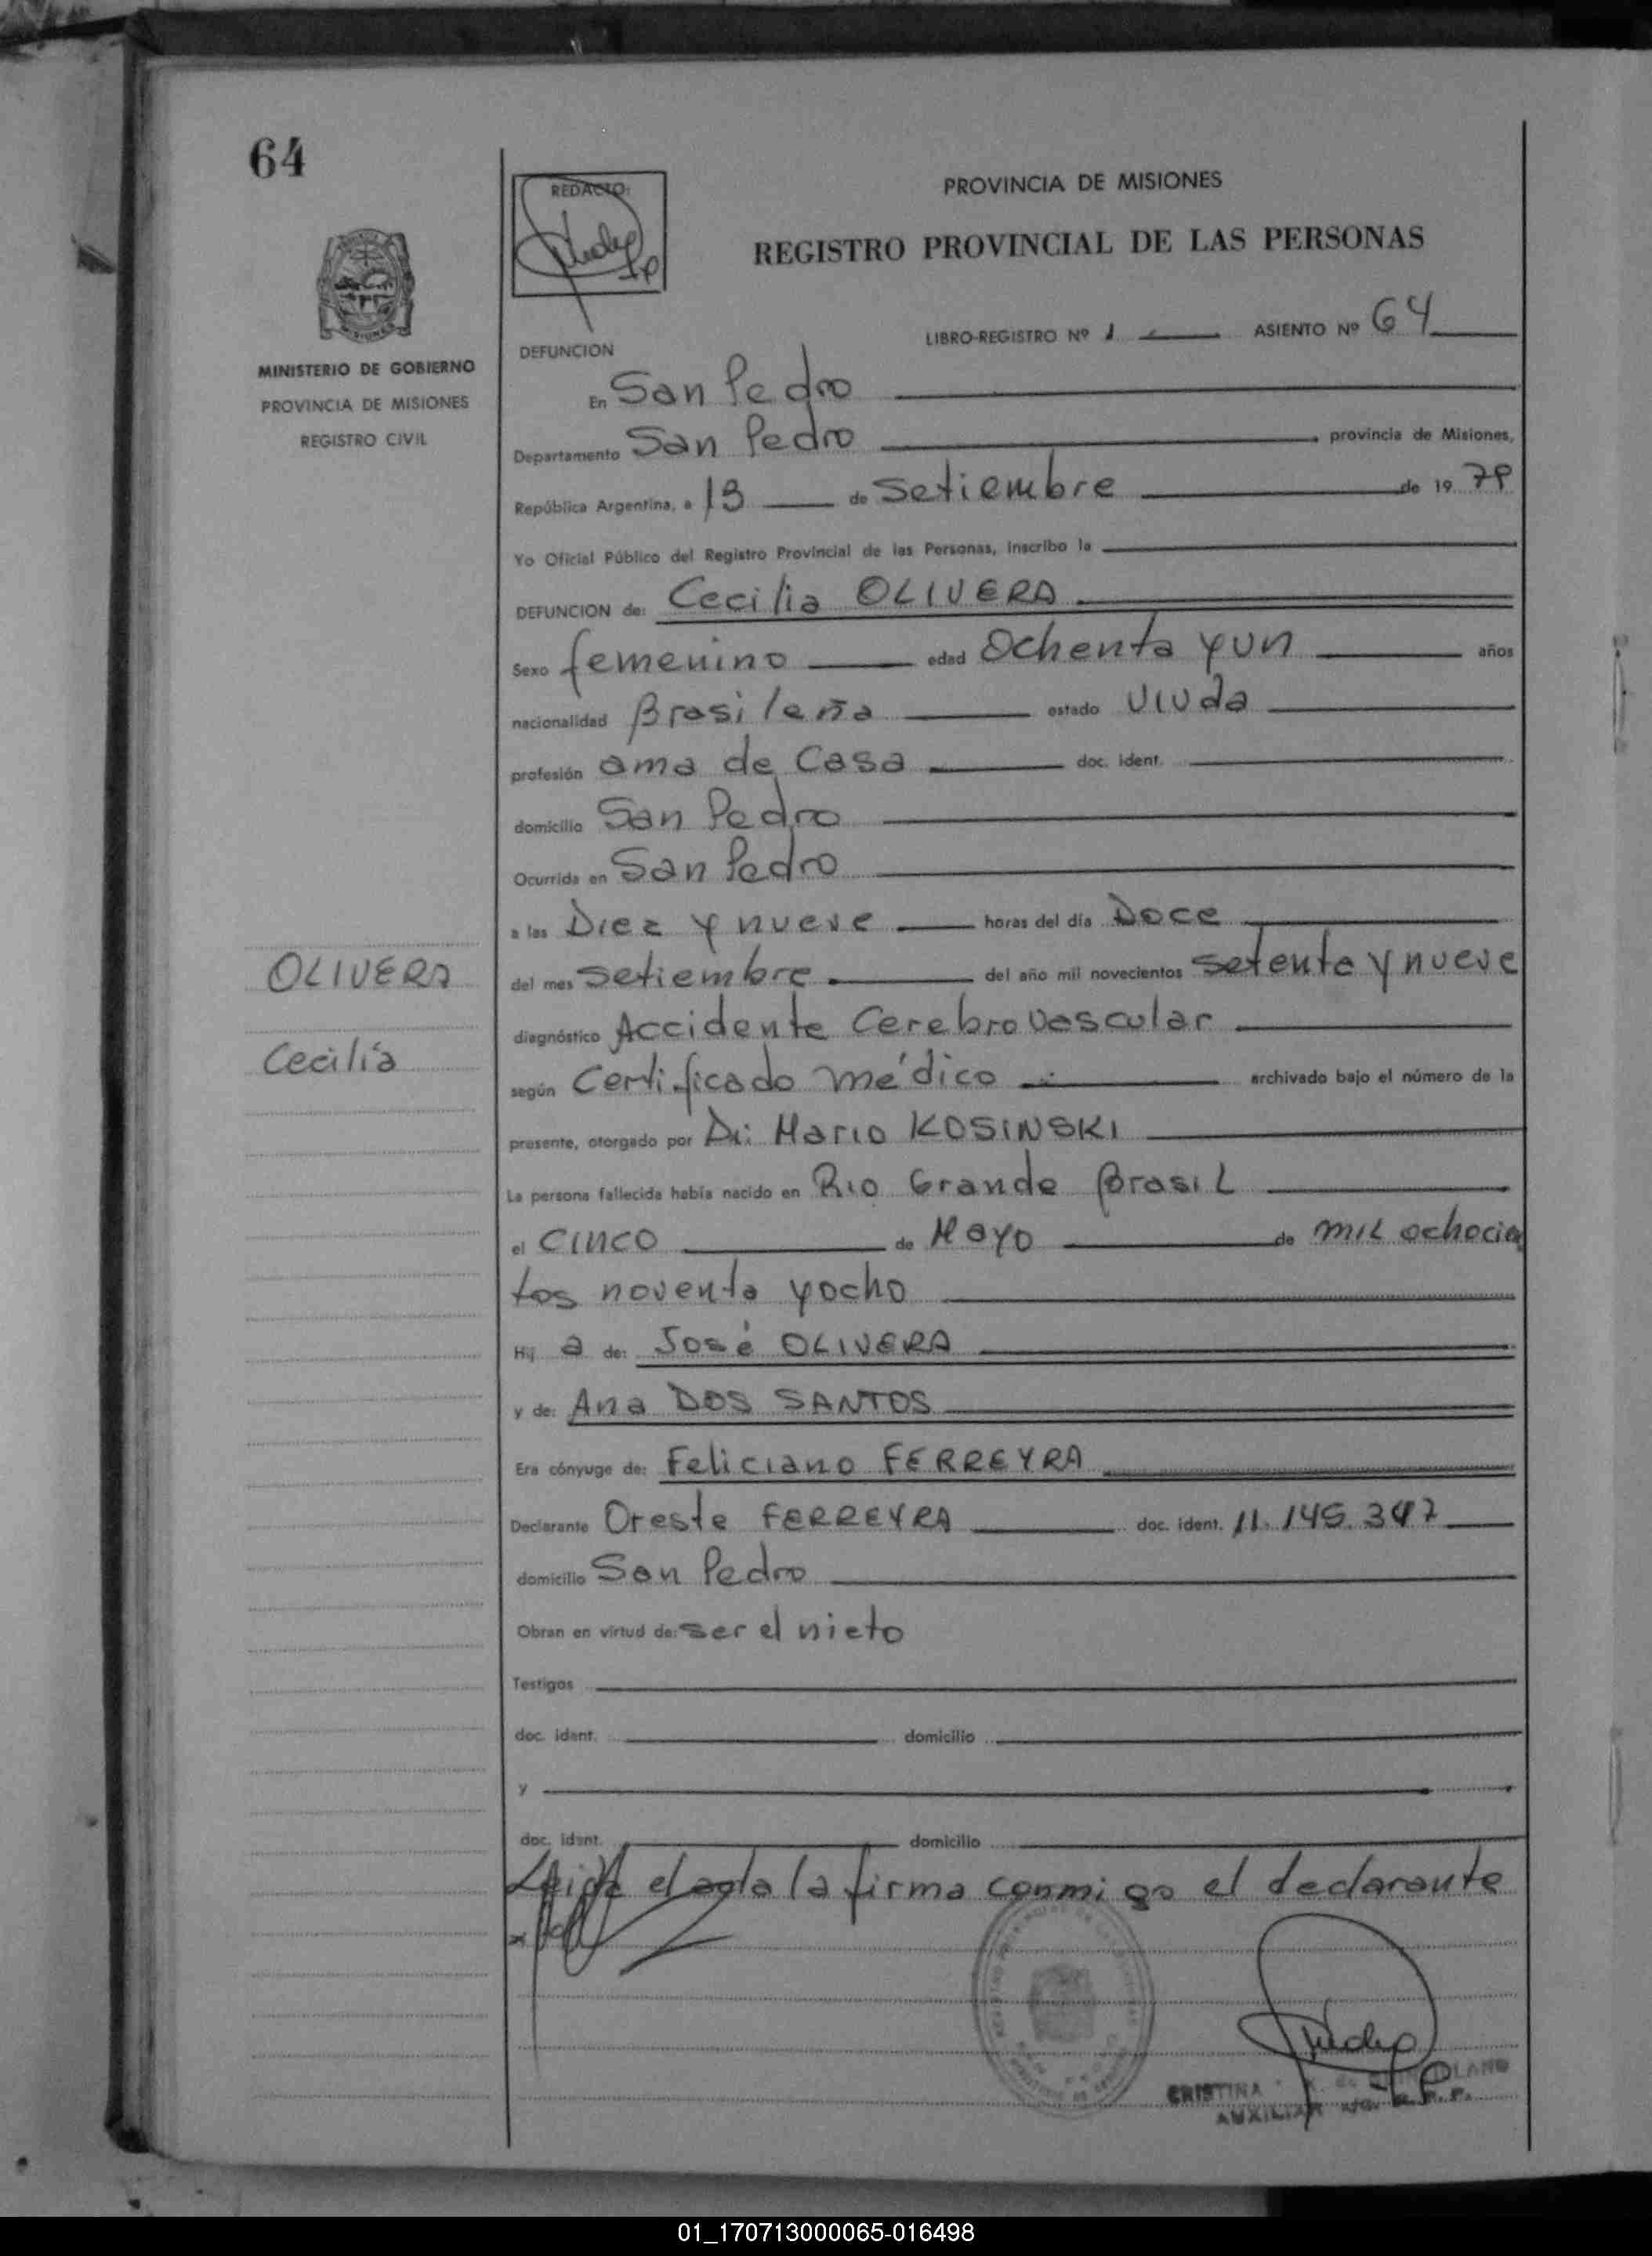 64
REDACTO:
PROVINCIA DE MISIONES
REGISTRO PROVINCIAL DE LAS PERSONAS
MINISTERIO DE GOBIERNO
PROVINCIA DE MISIONES
REGISTRO CIVIL
LIBRO-REGISTRO Nº 1 ASIENTO Nº 64
DEFUNCION
En San Pedro
Departamento San Pedro , provincia de Misiones,
República Argentina, a 13 de Setiembre de 19 79
Yo Oficial Público del Registro Provincial de las Personas, inscribo la
DEFUNCION de: Cecilia OLIVERA
Sexo femenino edad Ochenta y un años
nacionalidad Brasileña estado Viuda
profesión ama de Casa doc. ident.
domicilio San Pedro
Ocurrida en San Pedro
a las Diez y nueve horas del día Doce
del mes Setiembre del año mil novecientos setenta y nueve
OLIVERA
diagnóstico Accidente Cerebro vascular
Cecilia
según Certificado médico archivado bajo el número de la
presente, otorgado por Dr: Mario KOSINSKI
La persona fallecida había nacido en Rio Grande Brasil
el Cinco de Mayo de mil ochocien
tos noventa y ocho
Hij a de: José OLIVERA
y de: Ana DOS SANTOS
Era cónyuge de: Feliciano FERREYRA
Declarante Oreste FERREYRA doc. ident. 11.145.347
domicilio San Pedro
Obran en virtud de: ser el nieto
Testigos
doc. ident. domicilio
y
doc. ident. domicilio
Leida el acta la firma conmigo el declarante
CRISTINA
AUXILIAR
01_170713000065-016498